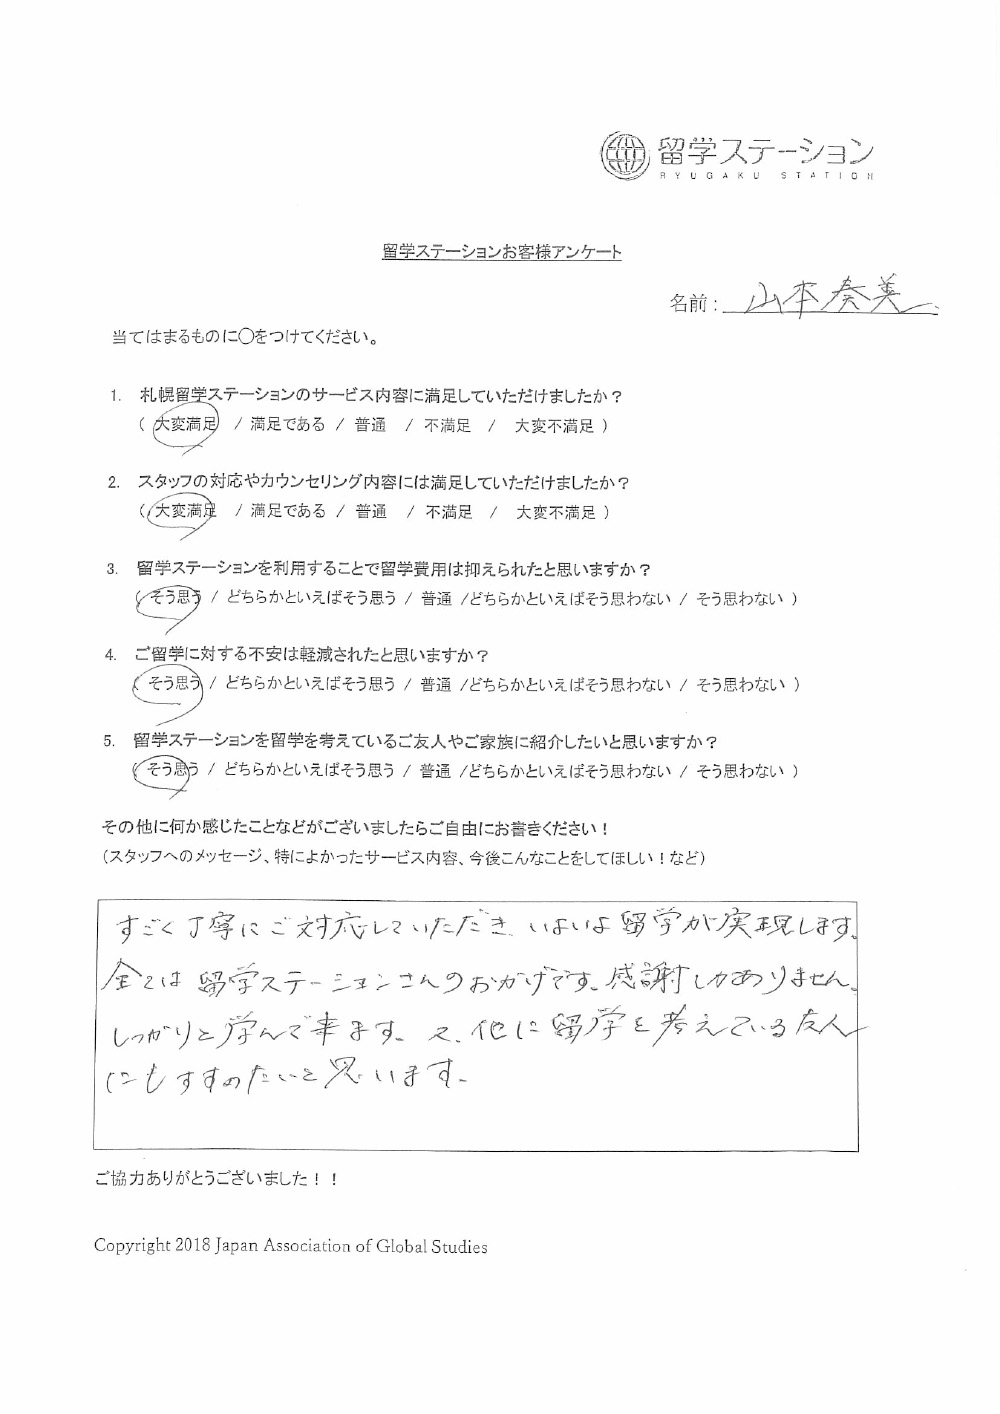 留学ステーション
RYUGAKU STATION
留学ステーションお客様アンケート
名前: 山本奏美
当てはまるものに〇をつけてください。
1. 札幌留学ステーションのサービス内容に満足していただけましたか？
( 大変満足 / 満足である / 普通 / 不満足 / 大変不満足 )
2. スタッフの対応やカウンセリング内容には満足していただけましたか？
( 大変満足 / 満足である / 普通 / 不満足 / 大変不満足 )
3. 留学ステーションを利用することで留学費用は抑えられたと思いますか？
( そう思う / どちらかといえばそう思う / 普通 /どちらかといえばそう思わない / そう思わない )
4. ご留学に対する不安は軽減されたと思いますか？
( そう思う / どちらかといえばそう思う / 普通 /どちらかといえばそう思わない / そう思わない )
5. 留学ステーションを留学を考えているご友人やご家族に紹介したいと思いますか？
( そう思う / どちらかといえばそう思う / 普通 /どちらかといえばそう思わない / そう思わない )
その他に何か感じたことなどがございましたらご自由にお書きください！
（スタッフへのメッセージ、特によかったサービス内容、今後こんなことをしてほしい！など）
すごく丁寧にご対応していただき、いよいよ留学が実現します。
全ては留学ステーションさんのおかげです。感謝しかありません。
しっかりと学んで来ます。又、他に留学を考えている友人
にもすすめたいと思います。
ご協力ありがとうございました！！
Copyright 2018 Japan Association of Global Studies